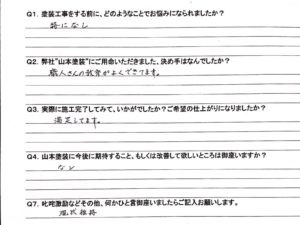 Q1. 塗装工事をする前に、どのようなことでお悩みになられましたか?
特になし
Q2. 弊社"山本塗装"にご用命いただきました、決め手はなんでしたか?
職人さんの教育がよくできてます。
Q3. 実際に施工完了してみて、いかがでしたか?ご希望の仕上がりになりましたか?
満足してます。
Q4. 山本塗装に今後に期待すること、もしくは改善して欲しいところは御座いますか?
なし
Q7. 叱咤激励などその他、何かひと言御座いましたらご記入お願いします。
現状維持